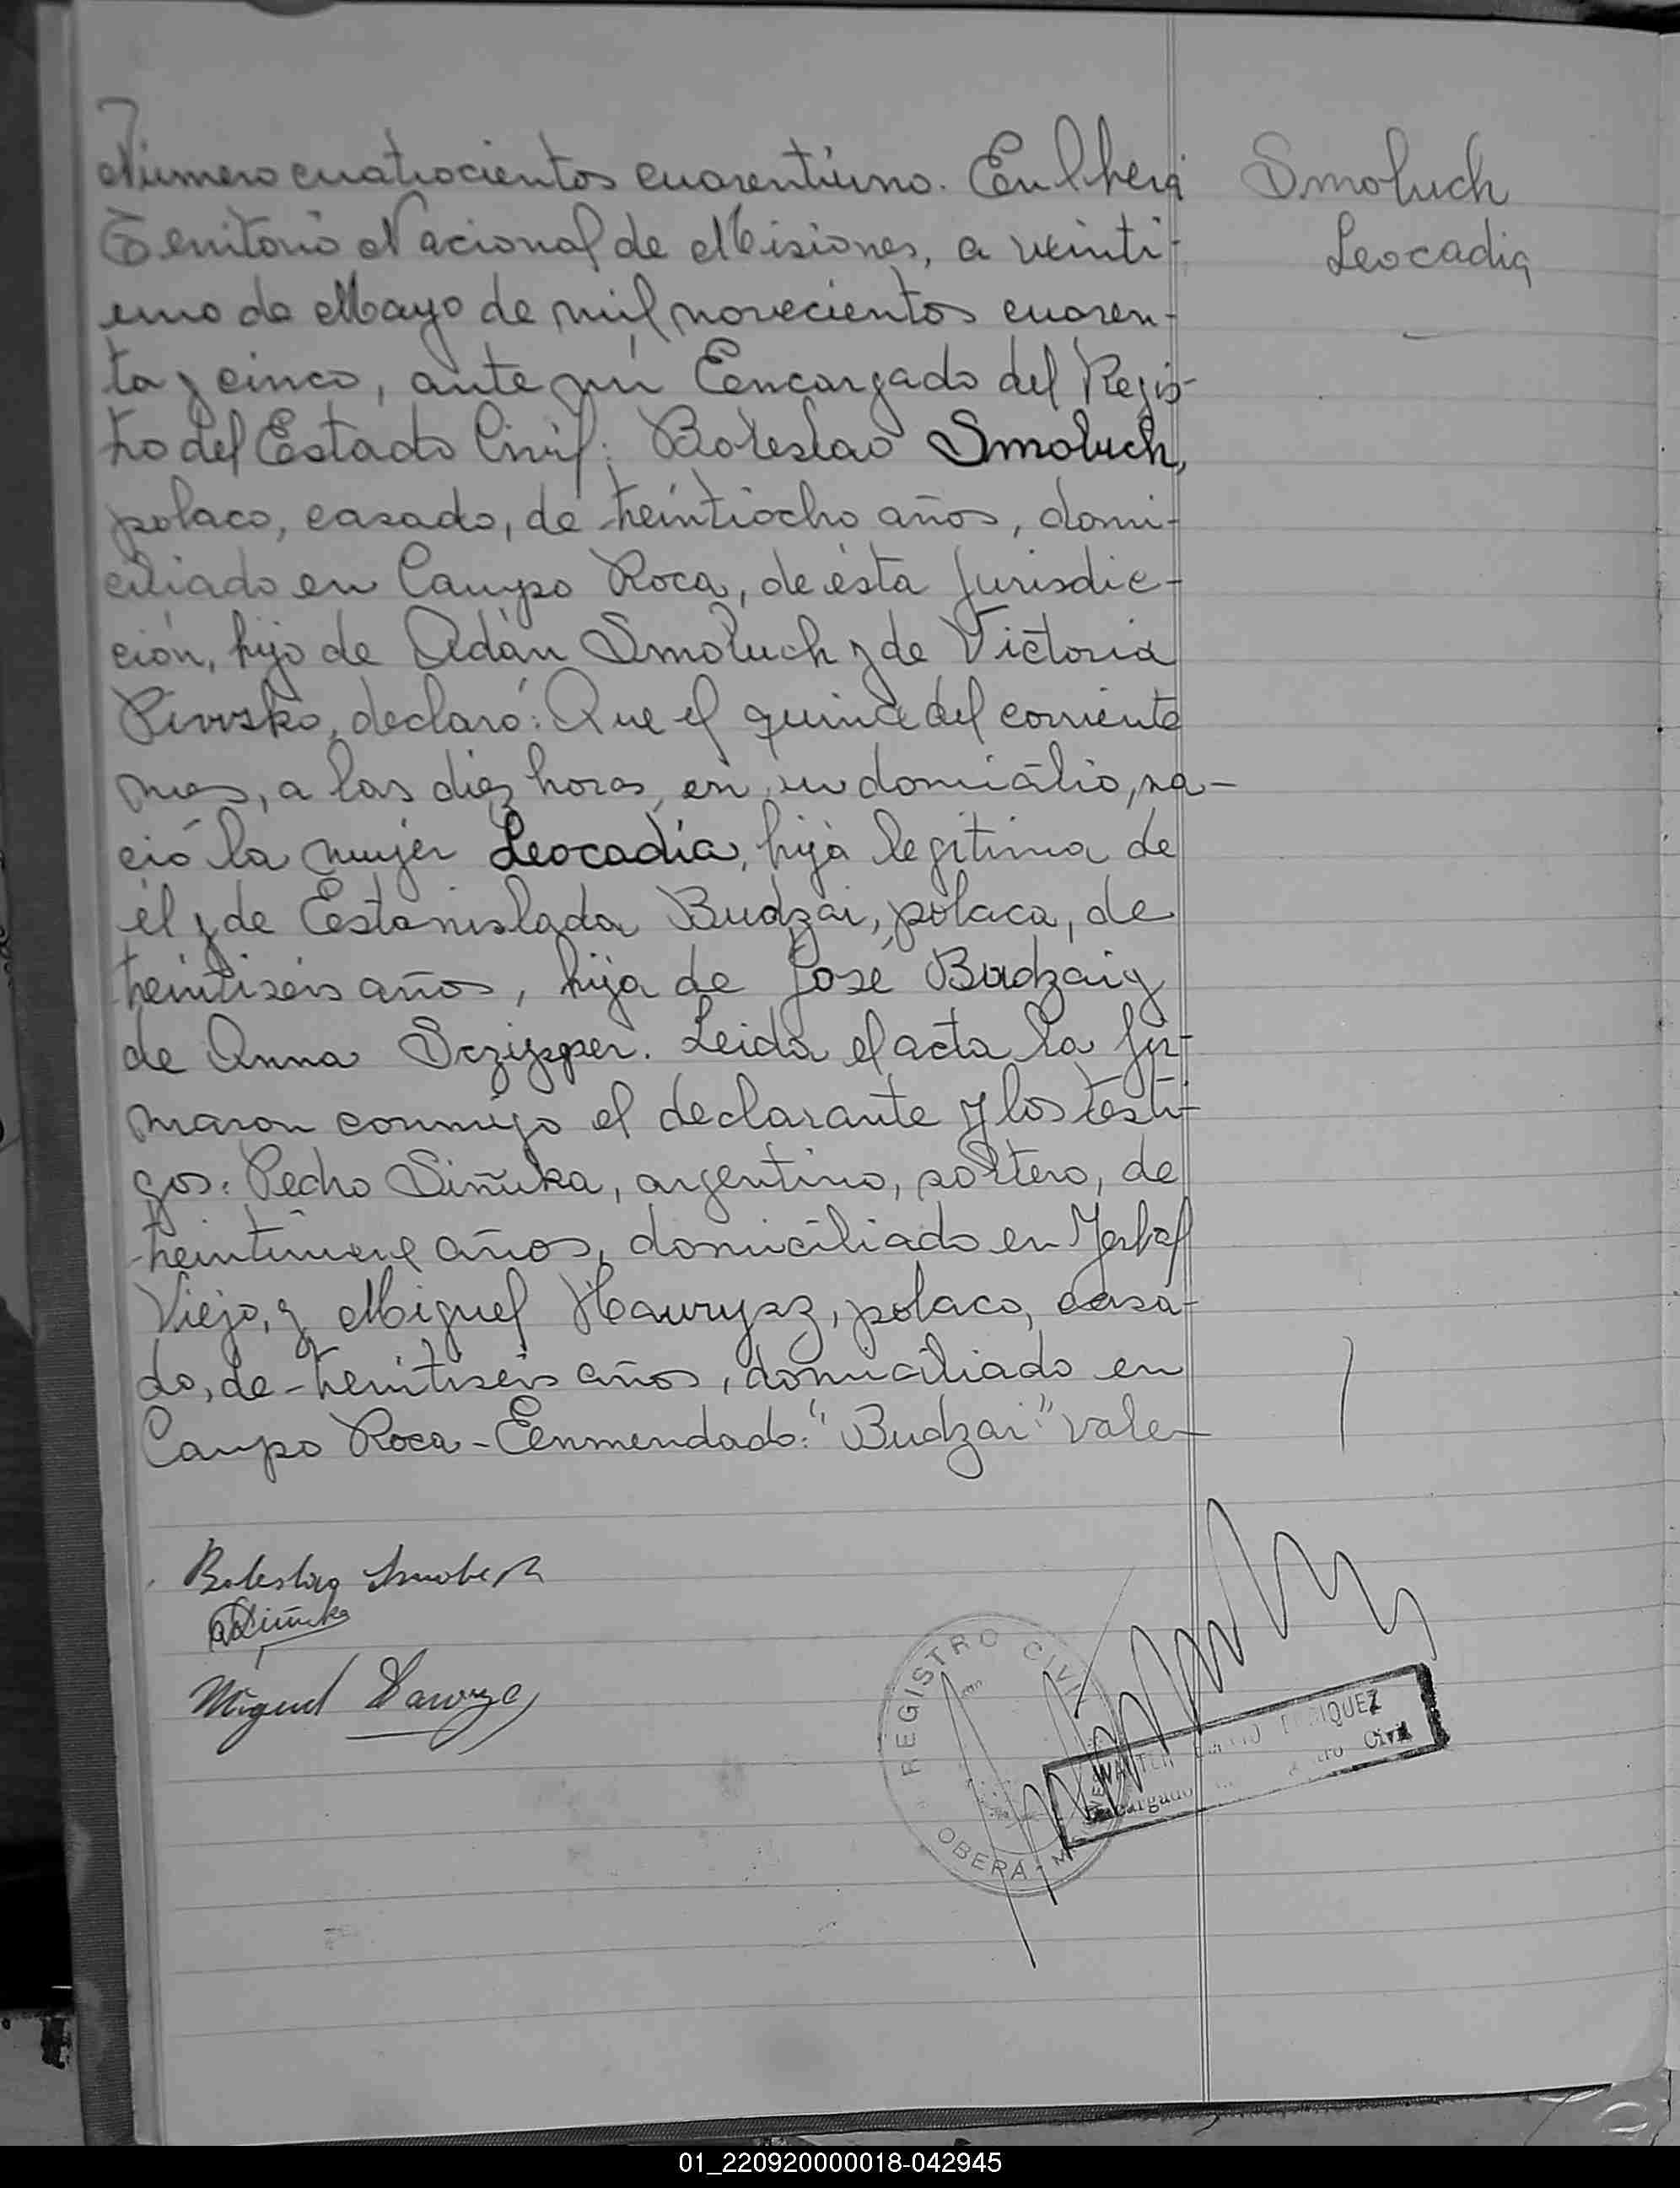 Número cuatrocientos cuarentiuno. En Oberá
Smoluch
Territorio Nacional de Misiones, a veinti-
Leocadia
uno de Mayo de mil novecientos cuaren-
ta y cinco, ante mí Encargado del Regis-
tro del Estado Civil: Boleslao Smoluch,
polaco, casado, de treintiocho años, domi-
ciliado en Campo Roca, de ésta Jurisdic-
ción, hijo de Adán Smoluch y de Victoria
declaró: Que el quince del corriente
mes, a las diez horas, en su domicilio, na-
ció la mujer Leocadia, hija legítima de
él y de Estanislada Budzai, polaca, de
treintiseis años, hija de José Budzai y
de Anna Leida el acta la fir-
maron conmigo el declarante y los testi-
gos: Pedro Siñuka, argentino, soltero, de
treintinueve años, domiciliado en Yerbal
Viejo, y Miguel Hawrysz, polaco, casa-
do, de treintiseis años, domiciliado en
Campo Roca - Enmendado: "Budzai" Vale-
Boleslao Smoluch
Siñuka
Miguel
REGISTRO CIVIL
OBERA - M
WALTER
IQUEZ
Encargado
Civil
01_220920000018-042945